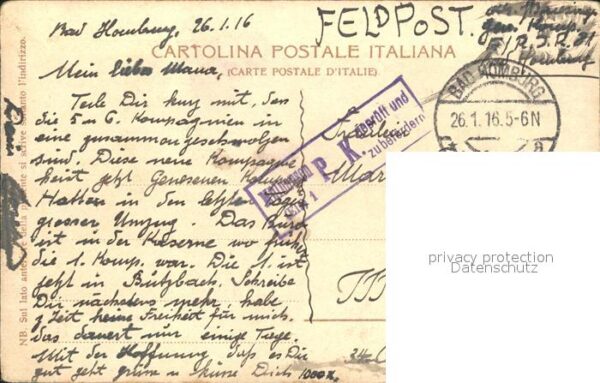 Bad Homburg, 26.1.16
FELDPOST.
CARTOLINA POSTALE ITALIANA
(CARTE POSTALE D'ITALIE)
Mein lieber
Teile Dir kurz mit, das
die 5 u 6. Kompagnien in
eine zusammengeschmolzen
sind. Diese neue Kompagnie
heist jetzt Genesenen
Hatten in den letzte
grosser Umzug. Das
ist in der Kaserne wo früh
die 1. Komp. war. Die 1. ist
jetzt in Butzbach. Schreibe
Dir nächstens mehr, habe
z Zeit keine Freiheit für mich.
das dauert nur einige Tage.
Mit der Hoffnung, dass es Dir
gut geht grüsse u küsse Dich 1000 x.
BAD HOMBURG
26.1.16.5-6N
P. K.
geprüft und
zu befördern
Fräulein
Mar
privacy protection
Datenschutz
NB. Sul lato anteriore della presente si scrive soltanto l'indirizzo.